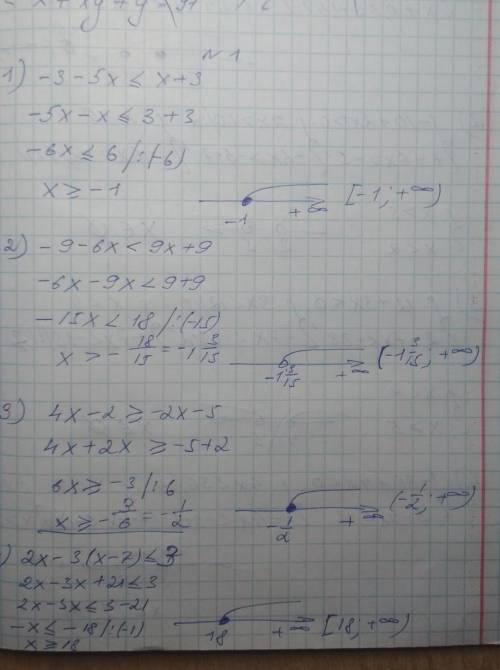 №1
1) -3-5x ≤ x+3
-5x-x ≤ 3+3
-6x ≤ 6 /:(-6)
x ≥ -1
-1 +∞ [-1; +∞)
2) -9-6x < 9x+9
-6x-9x < 9+9
-15x < 18 /:(-15)
x > -18/15 = -1 3/15
-1 3/15 +∞ (-1 3/15; +∞)
3) 4x-2 ≥ -2x-5
4x+2x ≥ -5+2
6x ≥ -3 /:6
x ≥ -3/6 = -1/2
-1/2 +∞ (-1/2; +∞)
) 2x-3(x-7) ≤ 3
2x-3x+21 ≤ 3
2x-3x ≤ 3-21
-x ≤ -18 /:(-1)
x ≥ 18
18 +∞ [18; +∞)